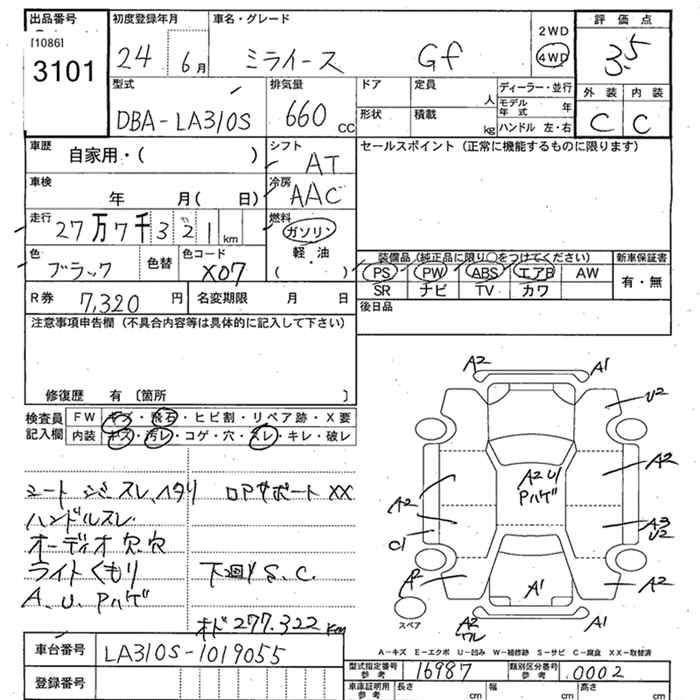 出品番号
[1086]
3101
初度登録年月
24 6月
車名・グレード
ミライース Gf
2WD
4WD
評価点
3.5
型式
DBA-LA310S
排気量
660 cc
ドア
定員
人
形状
積載
kg
ディーラー・並行
モデル年式 年
ハンドル 左・右
外装 内装
C C
車歴
自家用・( )
シフト
AT
セールスポイント(正常に機能するものに限ります)
車検
年 月( 日)
冷房
AAC
走行
27万7千321km
燃料
ガソリン
軽・油
( )
色
ブラック
色替
色コード
X07
装備品(純正品に限り○をつけてください)
新車保証書
PS PW ABS エアB AW
SR ナビ TV カワ
有・無
R券 7,320円
名変期限 月 日
後日品
注意事項申告欄(不具合内容等は具体的に記入して下さい)
修復歴 有〔箇所 〕
検査員記入欄
FW キズ・飛石・ヒビ割・リペア跡・X要
内装 キズ・汚レ・コゲ・穴・スレ・キレ・破レ
シート シミ スレ、ヘタリ
ハンドルスレ
オーディオ欠.穴
ライトくもり
A、U、Pハゲ
ロアサポート XX
下回り S、C.
オド 277.322 km
A2 A1
U2
A2
A2 U1
Pハゲ
A2
A3
U2
C1
A2
A1
A2
A2
A1
スペア
A-キズ E-エクボ U-凹み W-補修跡 S-サビ C-腐食 XX-取替済
車台番号
LA310S-1019055
登録番号
型式指定番号
参考
16987
類別区分番号
参考
0002
車庫証明用
参考
長さ cm
幅 cm
高さ cm